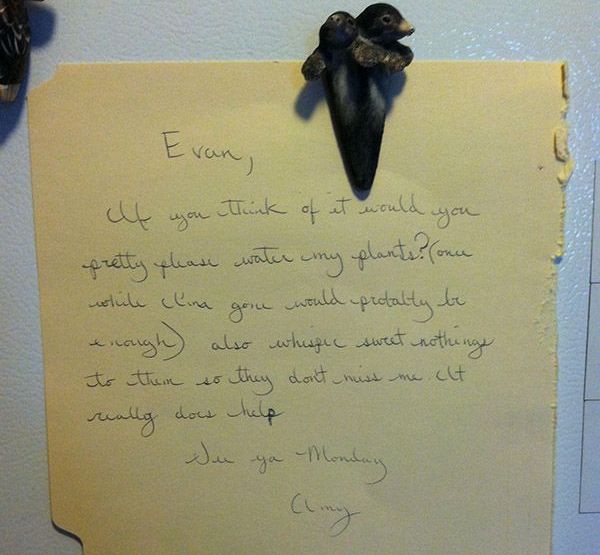 Evan,
If you think of it would you
pretty please water my plants? (once
while I'm gone would probably be
enough) also whisper sweet nothings
to them so they don't miss me. It
really does help
See ya Monday
Amy